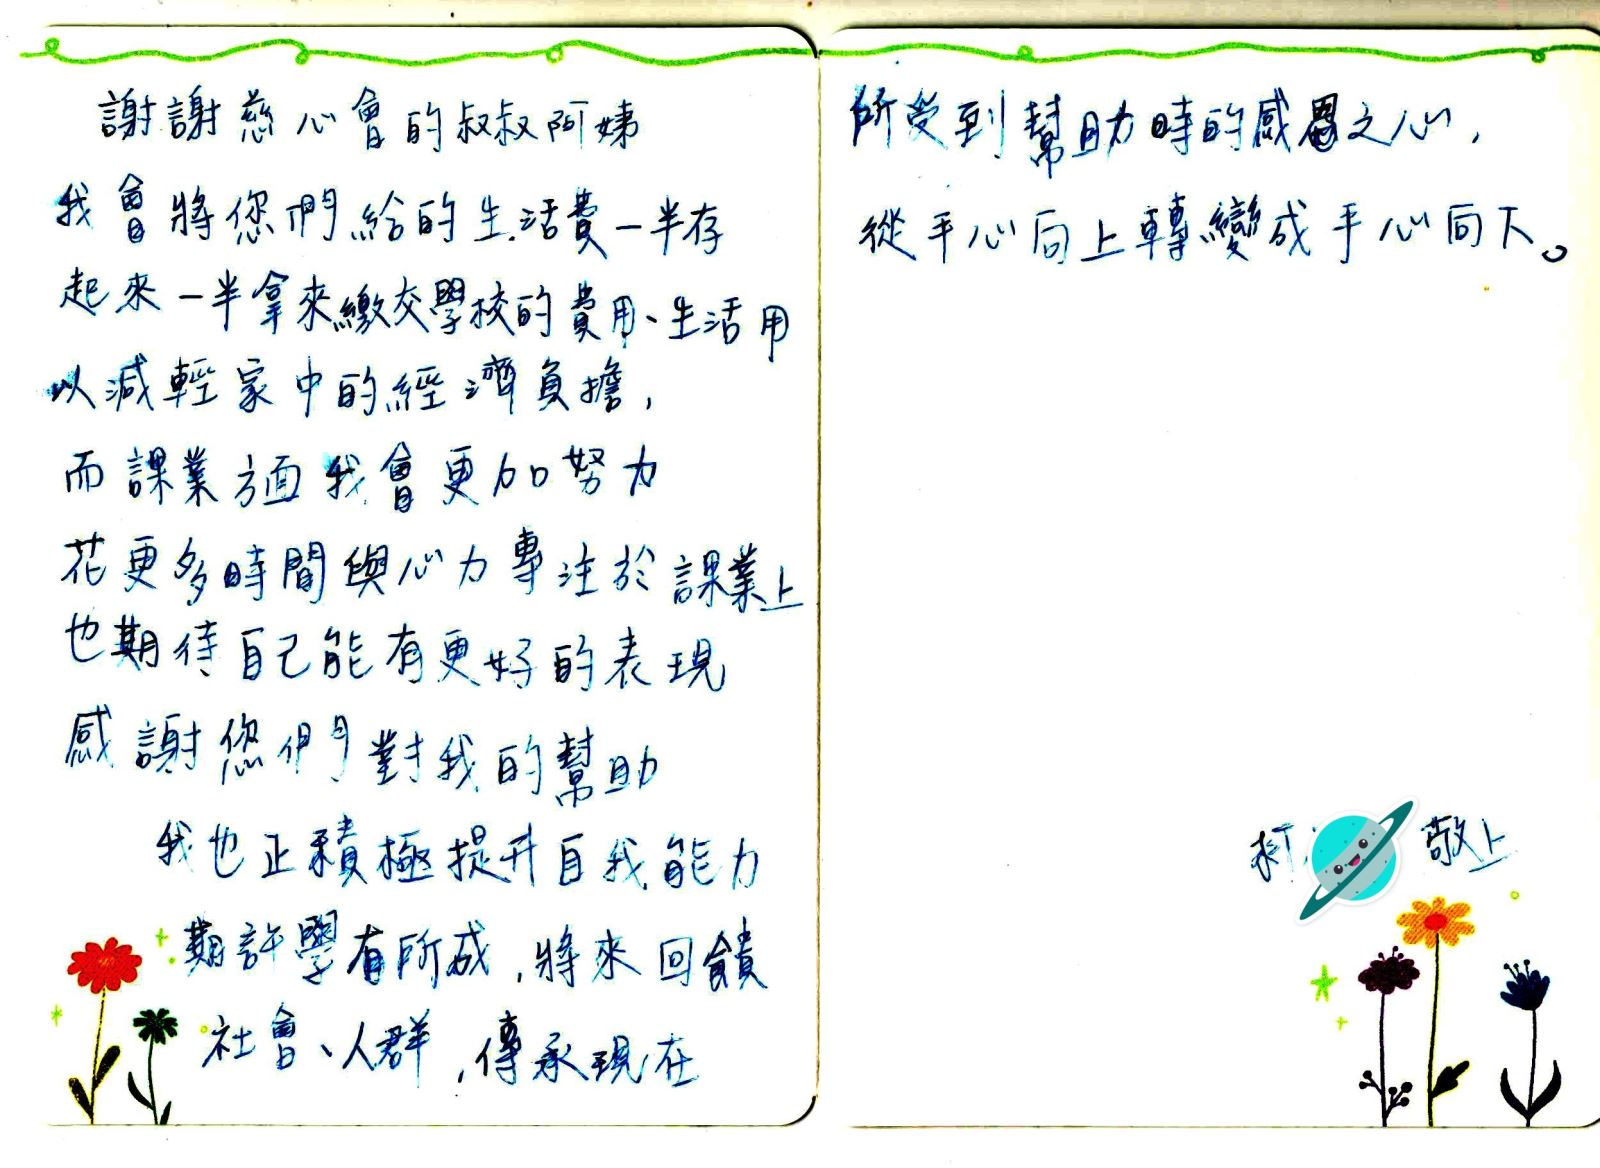 謝謝慈心會的叔叔阿姨
我會將您們給的生活費一半存
起來一半拿來繳交學校的費用、生活用
以減輕家中的經濟負擔，
而課業方面我會更加努力
花更多時間與心力專注於課業上
也期待自己能有更好的表現
感謝您們對我的幫助
我也正積極提升自我能力
期許學有所成，將來回饋
社會、人群，傳承現在
所受到幫助時的感恩之心，
從手心向上轉變成手心向下。
柯 敬上